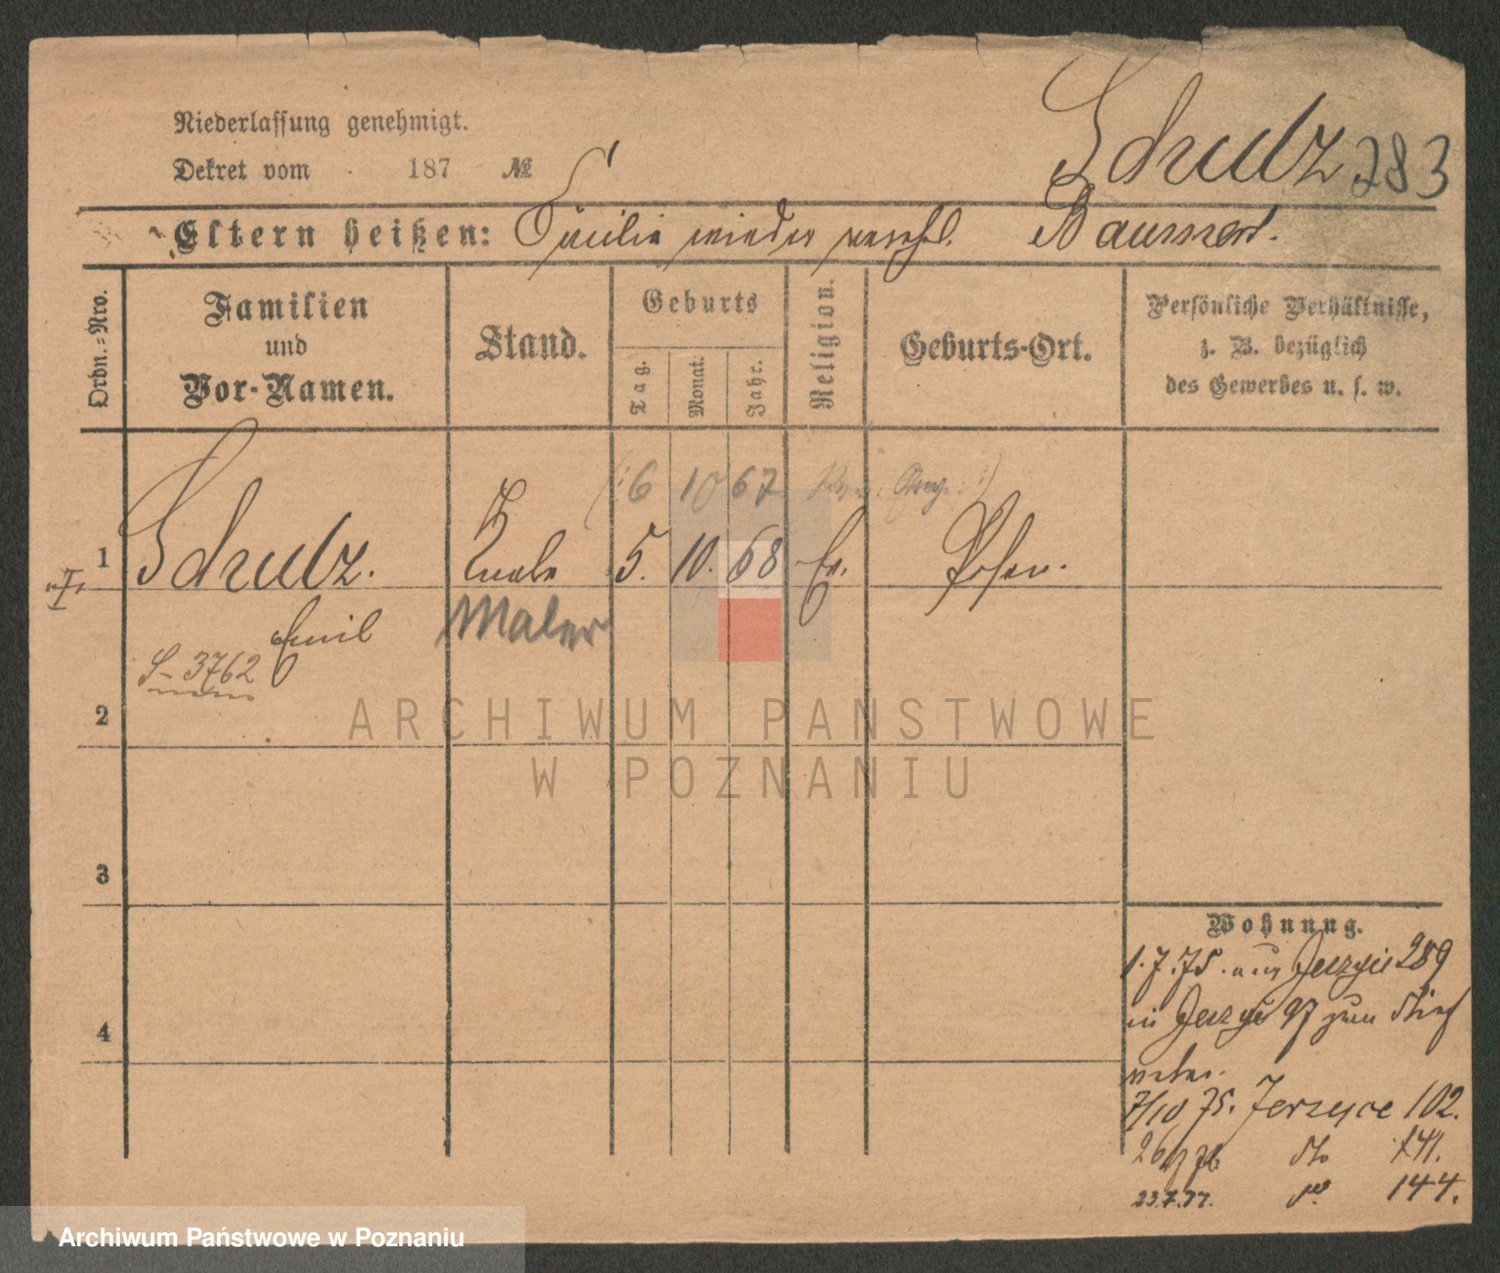 Niederlassung genehmigt.
Dekret vom 187 №
Schulz 283
Eltern heißen: Cäcilie wieder verehel. Baumert.
Ordn.-Nro.
Familien
und
Vor-Namen.
Stand.
Geburts
Tag. Monat. Jahr.
Religion.
Geburts-Ort.
Persönliche Verhältnisse,
z. B. bezüglich
des Gewerbes u. s. w.
6 10 67
1 Schulz. Knabe 5. 10. 68 Ev. Posen.
I
Emil Maler
S-3762
2
3
4
Wohnung.
1.7.75. aus Jerzyce 289
in Jerzyce 97 zum Stief
vater.
7/10 75. Jersyce 102.
dto 141.
23.7.77. do 144.
ARCHIWUM PAŃSTWOWE
W POZNANIU
Archiwum Państwowe w Poznaniu